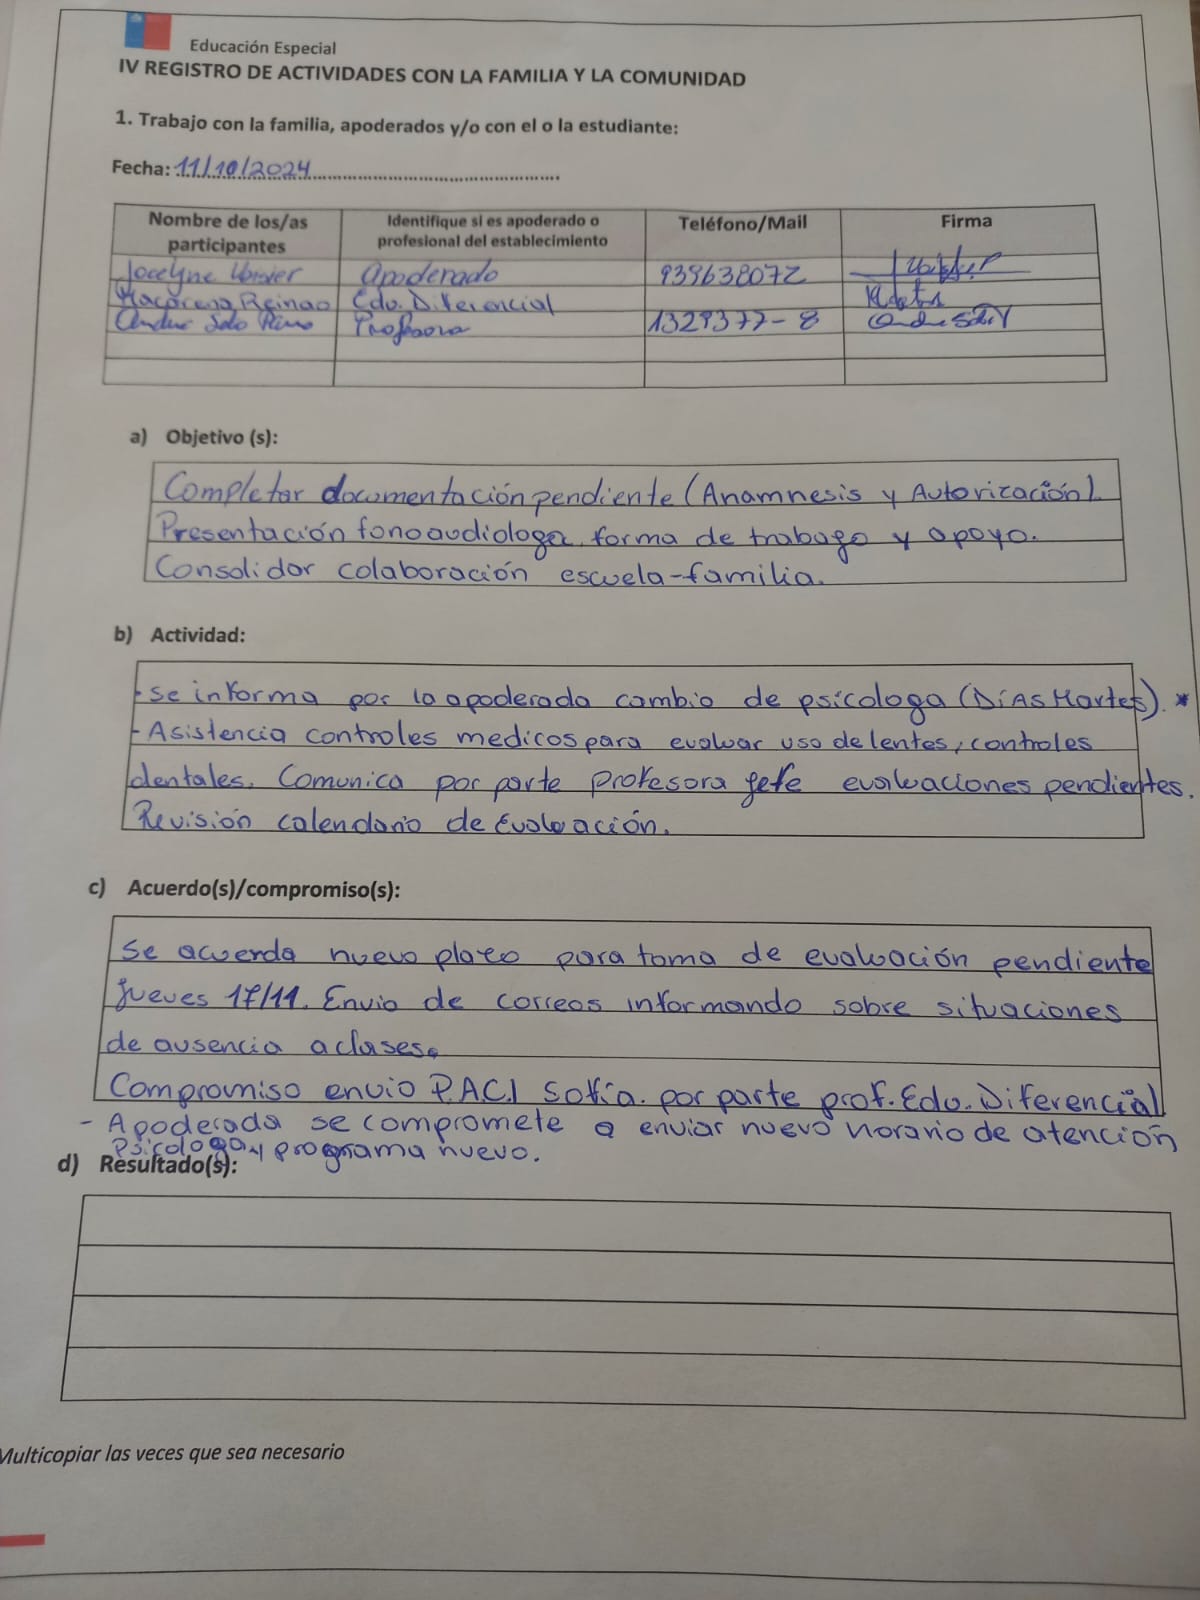 Educación Especial
IV REGISTRO DE ACTIVIDADES CON LA FAMILIA Y LA COMUNIDAD
1. Trabajo con la familia, apoderados y/o con el o la estudiante:
Fecha: 11/10/2024
Nombre de los/as participantes Identifique si es apoderado o profesional del establecimiento Teléfono/Mail Firma
Jocelyne Apoderado 939638072
Macarena Reinao Edo. Diferencial
Soto Profesora 1329377-8
a) Objetivo (s):
Completar documentación pendiente (Anamnesis y Autorización).
Presentación fonoaudiologa, forma de trabajo y apoyo.
Consolidar colaboración escuela-familia.
b) Actividad:
- Se informa por la apoderada cambio de psicologa (Días Martes). *
- Asistencia controles medicos para evaluar uso de lentes, controles
dentales. Comunica por parte profesora jefe evaluaciones pendientes.
Revisión calendario de Evaluación.
c) Acuerdo(s)/compromiso(s):
Se acuerda nuevo plazo para toma de evaluación pendiente
Jueves 17/11. Envio de correos informando sobre situaciones
de ausencia a clases.
Compromiso envio P.A.C.I Sofía. por parte prof. Edu. Diferencial
- Apoderada se compromete a enviar nuevo horario de atención
Psicologa y programa nuevo.
d) Resultado(s):
Multicopiar las veces que sea necesario